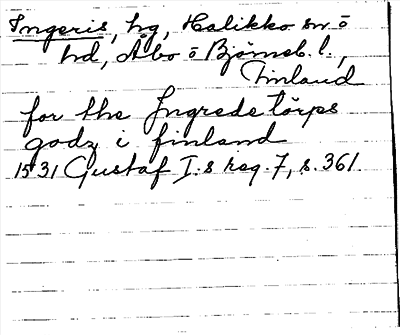 Ingeris, hg, Halikko sn o
hd, Åbo o Björneb. l.,
Finland
for the Jngrede törps
godz i finland
1531 Gustaf I:s reg. 7, s. 361.